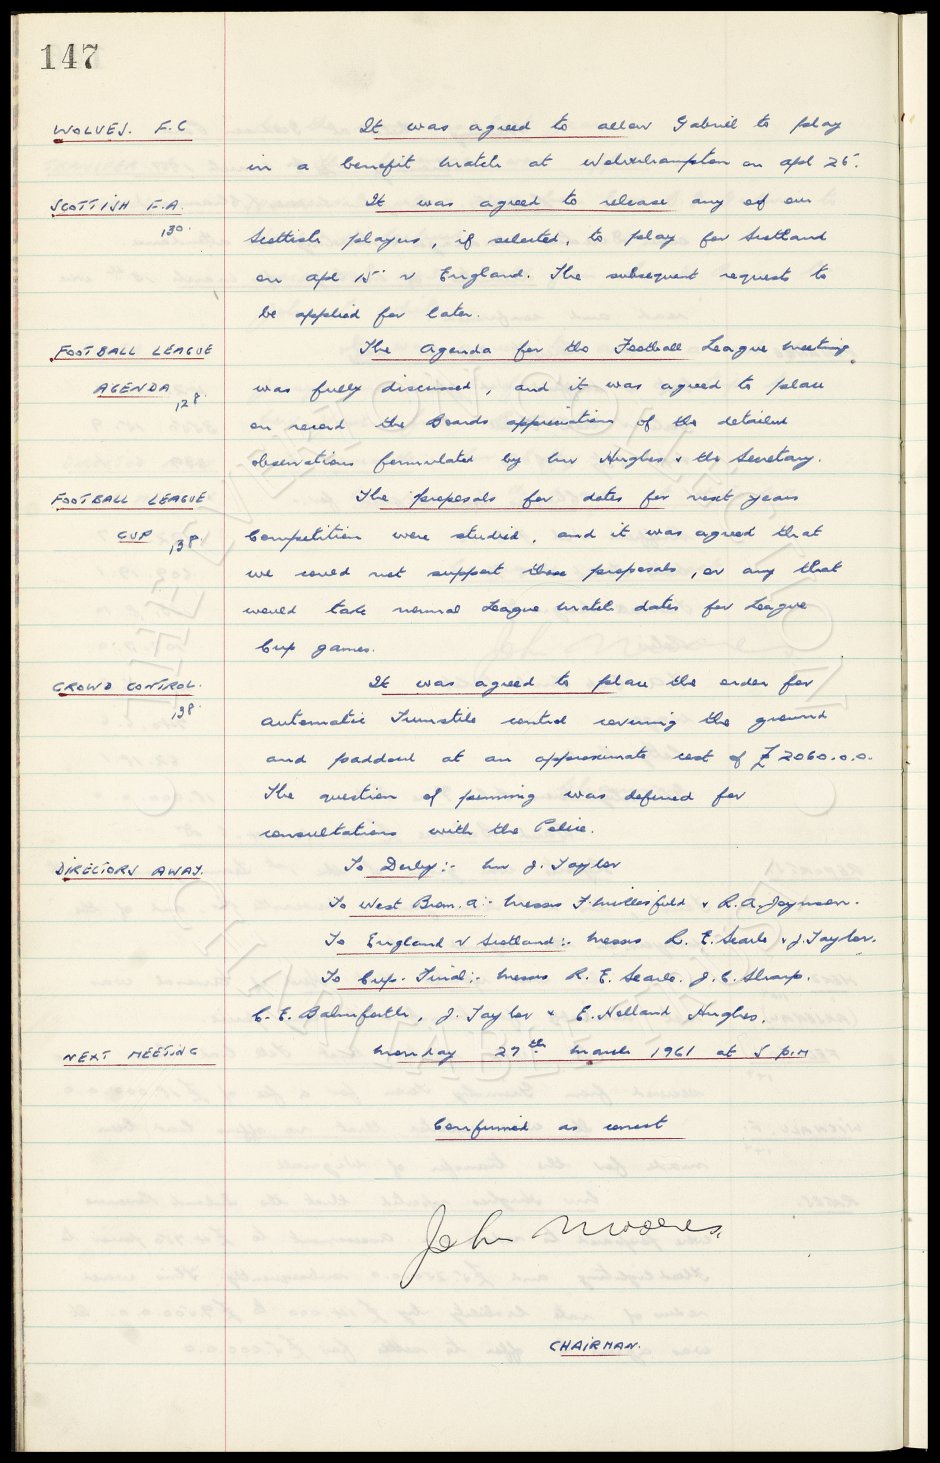 147
WOLVES. F.C It was agreed to allow Gabriel to play
in a benefit match at Wolverhampton on Apl 25.
SCOTTISH F.A. It was agreed to release any of our
130. Scottish players, if selected, to play for Scotland
on Apl 15 v England. The subsequent requests to
be applied for later.
FOOTBALL LEAGUE The Agenda for the Football League meeting,
AGENDA 128. was fully discussed, and it was agreed to place
on record the Boards appreciation of the detailed
observations formulated by Mr Hughes & the Secretary.
FOOTBALL LEAGUE The proposals for dates for next years
CUP 138. Competition were studied, and it was agreed that
we could not support these proposals, or any that
would take normal League match dates for League
Cup games.
CROWD CONTROL. It was agreed to place the order for
138. automatic Turnstile control covering the ground
and paddock at an approximate cost of £2060.0.0.
The question of penning was deferred for
consultations with the Police.
DIRECTORS AWAY. To Derby:- Mr J. Taylor
To West Brom. A:- Messrs F. Micklesfield & R.A. Joynson.
To England v Scotland:- Messrs R. E. Searle & J. Taylor.
To Cup. Final:- Messrs R. E. Searle. J. C. Sharp.
C. E. Balmforth, J. Taylor & E. Holland Hughes.
NEXT MEETING Monday 27th March 1961 at 5 p.m
Confirmed as correct
John Moores.
CHAIRMAN.